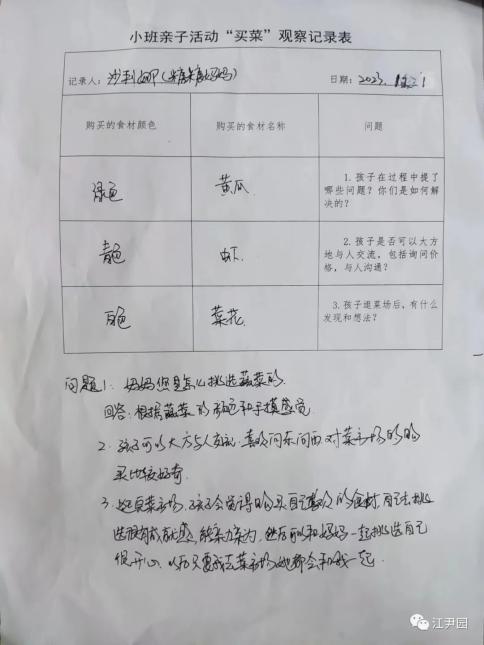 小班亲子活动“买菜”观察记录表
记录人：沙利娜（糖糖妈妈） 日期：2023.
购买的食材颜色 购买的食材名称 问题
绿色 黄瓜 1.孩子在过程中提了哪些问题？你们是如何解决的？
青色 虾 2.孩子是否可以大方地与人交流，包括询问价格，与人沟通？
白色 菜花 3.孩子逛菜场后，有什么发现和想法？
问题1：妈妈您是怎么挑选蔬菜的
回答：根据蔬菜的颜色和手摸感觉
2.孩子可以大方与人交流.喜欢问东问西对菜市场的购
买比较好奇.
3.逛完菜市场,孩子会觉得购买自己喜欢的食材,自己去挑
选很有成就感,然后可以和妈妈一起挑选自己
很开心.以后只要我去菜市场她都会和我一起.
江尹园